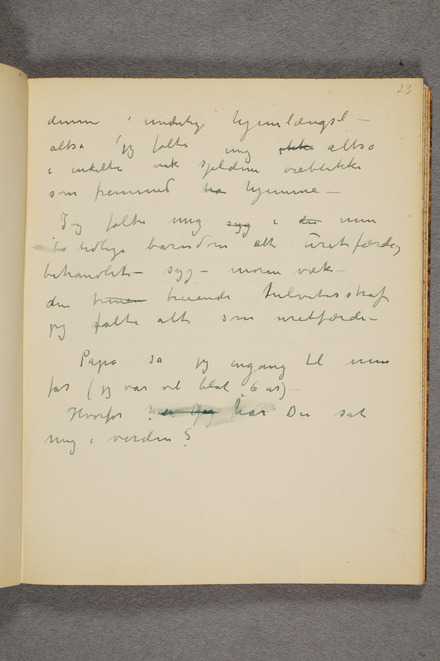 23
denne i underlige hjemlængsel –
altsa jeg følte mig ikke altso
i enkelte vak sjeldne øieblikke
som fremmed ha hjemme –
Jeg følte mig syg i der min
tidlige barndom alt uretfærdig
behandlet – syg – moren væk –
den truende helvetesstraf
jeg følte alt som uretfærdi –
Papa sa jeg engang til min
far (jeg var vel blot 6 år) –
Hvorfor har Du sat
mig i verden ?